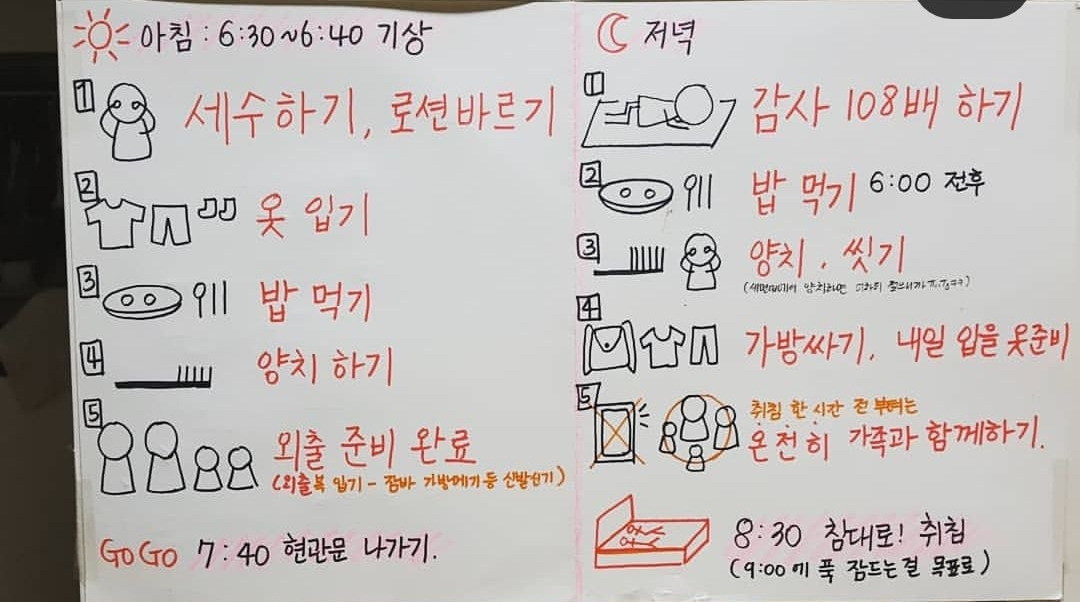 아침 : 6:30~6:40 기상
1
세수하기, 로션바르기
2
옷 입기
3
밥 먹기
4
양치 하기
5
외출 준비 완료
(외출복 입기 - 잠바 가방메기 등 신발신기)
GO GO 7:40 현관문 나가기.
저녁
1
감사 108배 하기
2
밥 먹기 6:00 전후
3
양치, 씻기
4
가방싸기, 내일 입을 옷준비
5
취침 한 시간 전 부터는
온전히 가족과 함께하기.
8:30 침대로! 취침
(9:00에 푹 잠드는걸 목표로)